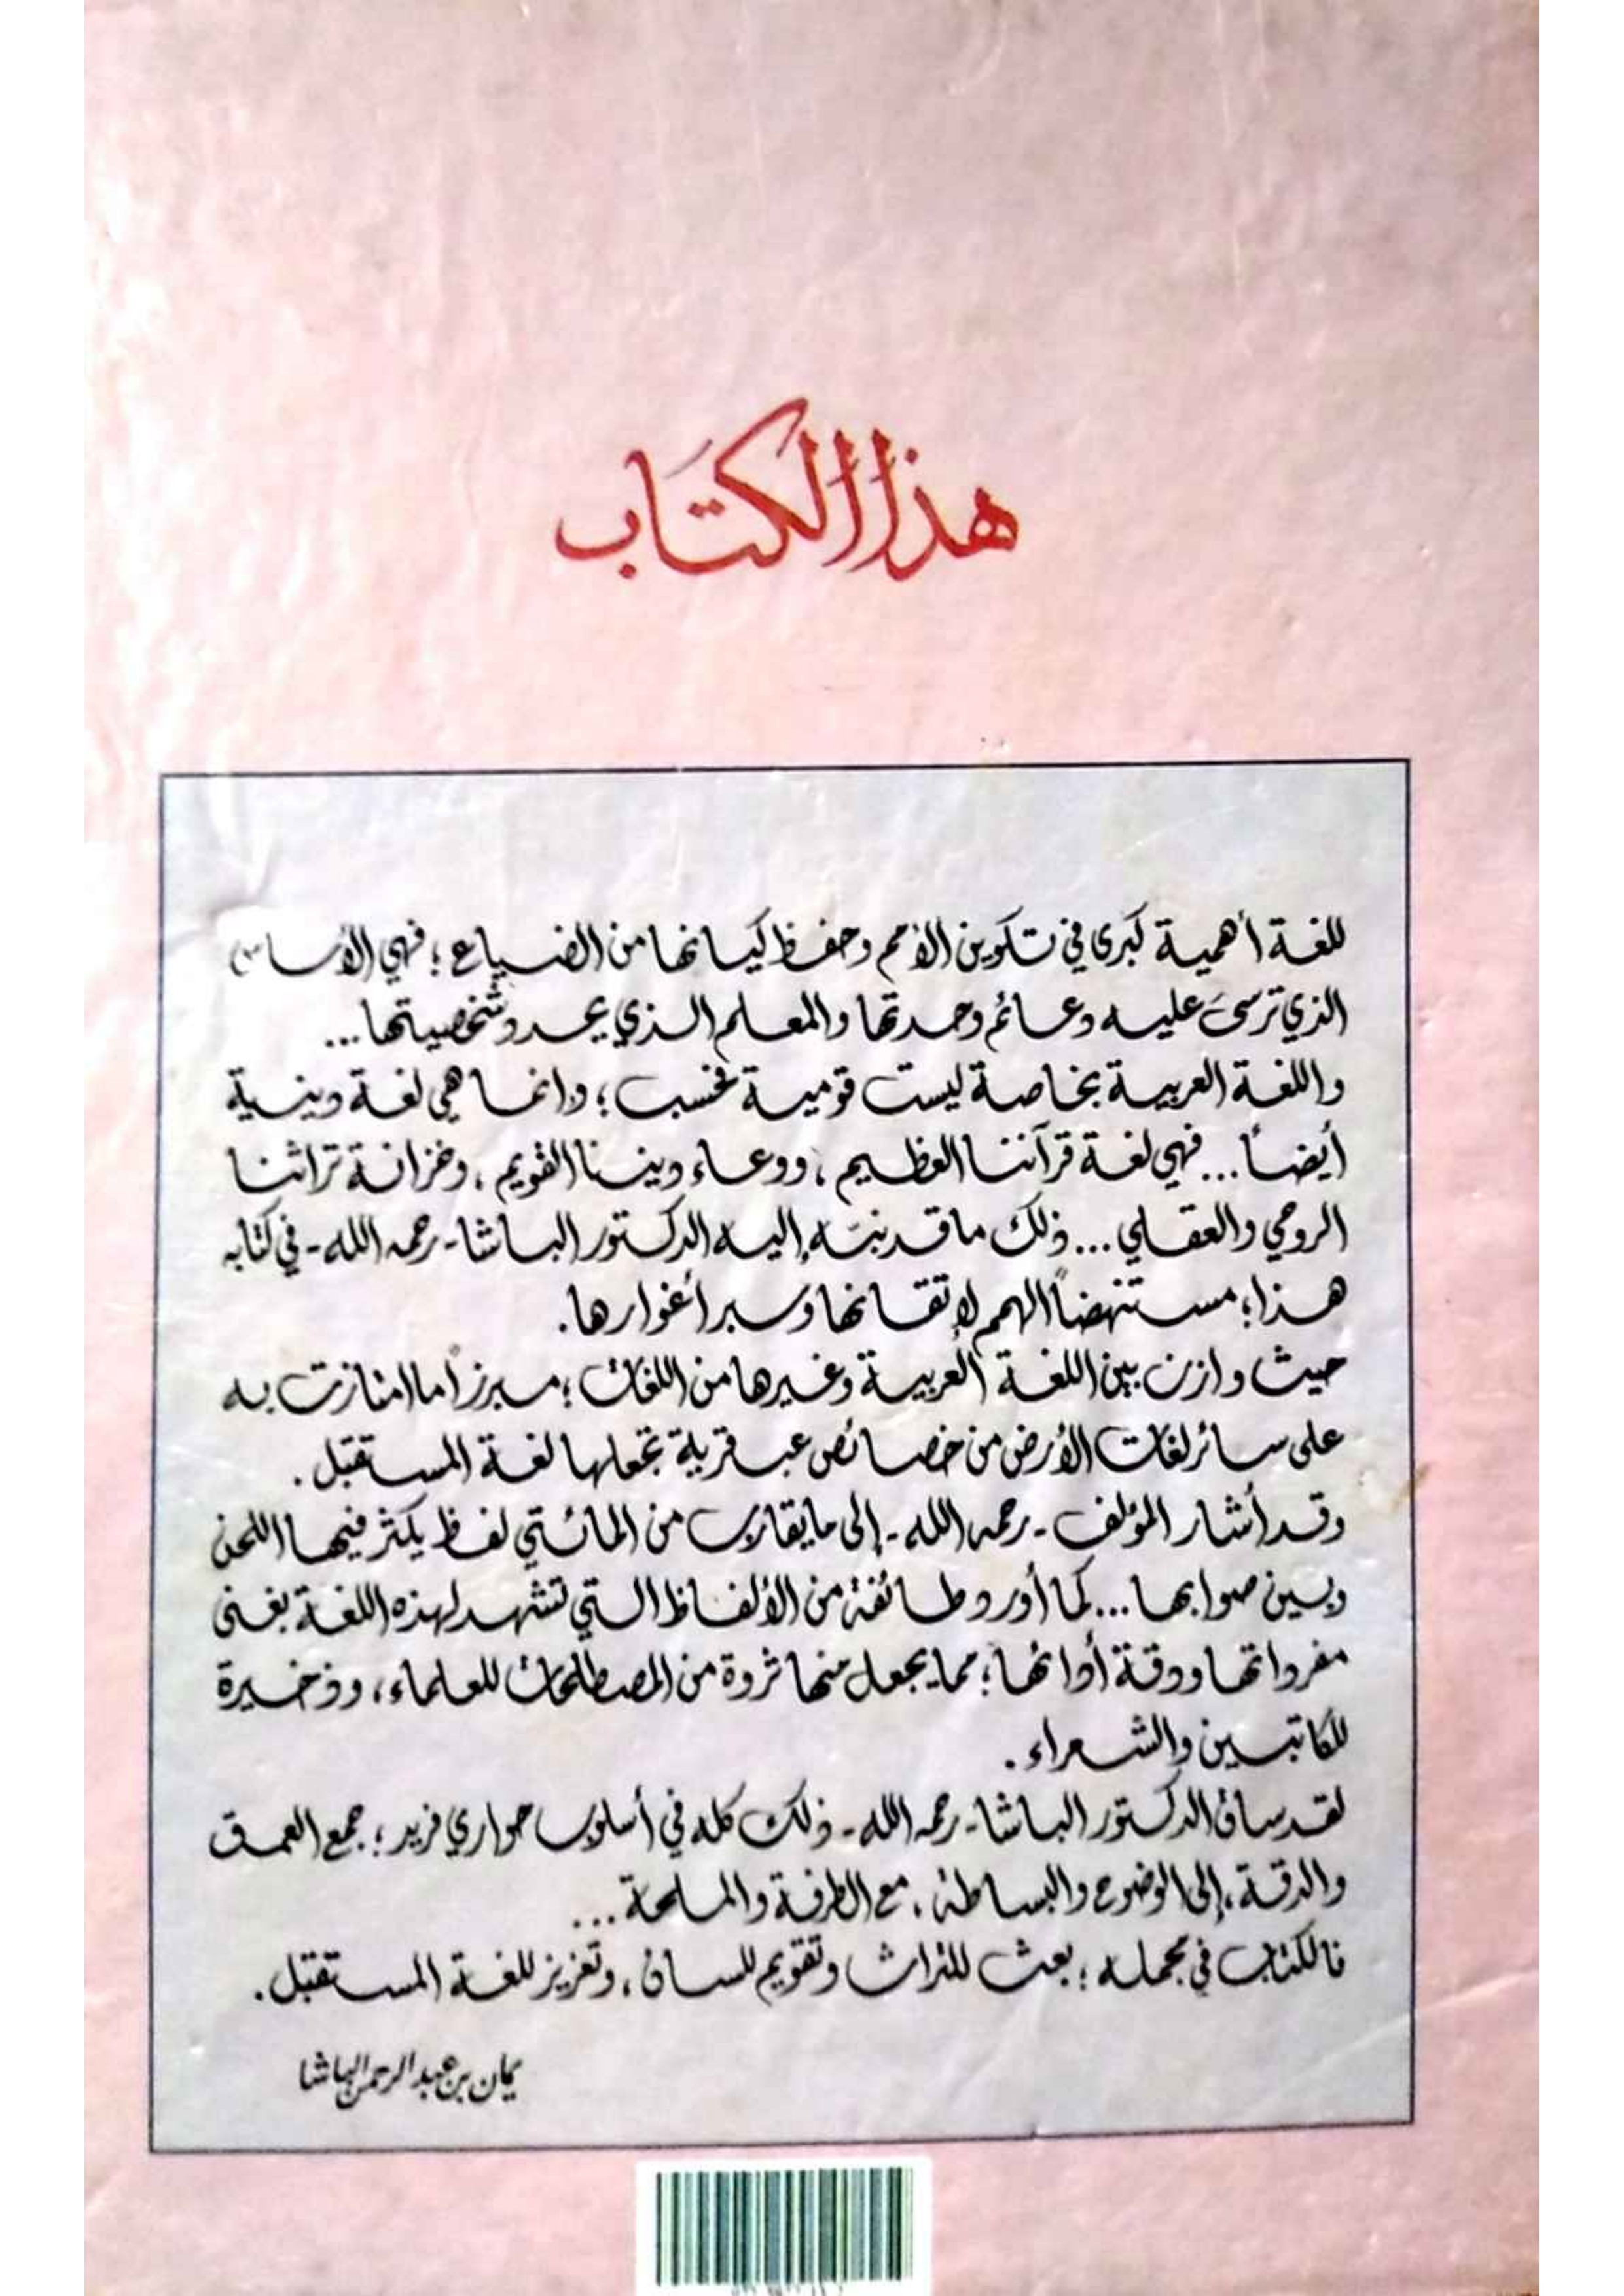 هذا الكتاب
للغة أهمية كبرى في تكوين الأمم وحفظ كيانها من الضياع؛ فهي الأساس
الذي ترسى عليه دعائم وحدتها والمعلم الذي يحدد شخصيتها...
واللغة العربية بخاصة ليست قومية فحسب؛ وإنما هي لغة دينية
أيضاً... فهي لغة قرآننا العظيم، ووعاء ديننا القويم، وخزانة تراثنا
الروحي والعقلي... ذلك ما قد نبّه إليه الدكتور الباشا - رحمه الله - في كتابه
هذا؛ مستنهضاً الهمم لإتقانها وسبر أغوارها.
حيث وازن بين اللغة العربية وغيرها من اللغات؛ مبرزاً ما امتازت به
على سائر لغات الأرض من خصائص عبقرية تجعلها لغة المستقبل.
وقد أشار المؤلف - رحمه الله - إلى ما يقارب من المائتي لفظ يكثر فيها اللحن
وبين صوابها... كما أورد طائفة من الألفاظ التي تشهد لهذه اللغة بغنى
مفرداتها ودقة أدائها؛ مما يجعل منها ثروة من المصطلحات للعلماء، وذخيرة
للكاتبين والشعراء.
لقد ساق الدكتور الباشا - رحمه الله - ذلك كله في أسلوب حواري فريد؛ جمع العمق
والدقة، إلى الوضوح والبساطة، مع الطرفة والملحة...
فالكتاب في مجمله؛ بعث للتراث وتقويم للسان، وتعزيز للغة المستقبل.
يمان بن عبد الرحمن الباشا